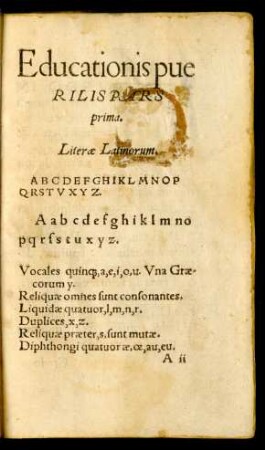 Educationis pue
RILIS PARS
prima.
Literæ Latinorum.
A B C D E F G H I K L M N O P
Q R S T V X Y Z.
A a b c d e f g h i k l m n o
p q r ſ s t u x y z.
Vocales quinqꝫ, a, e, i, o, u. Vna Græ-
corum y.
Reliquæ omnes ſunt conſonantes.
Liquidæ quatuor, l, m, n, r.
Duplices, x, z.
Reliquæ præter, s. ſunt mutæ.
Diphthongi quatuor æ, œ, au, eu.
A ii